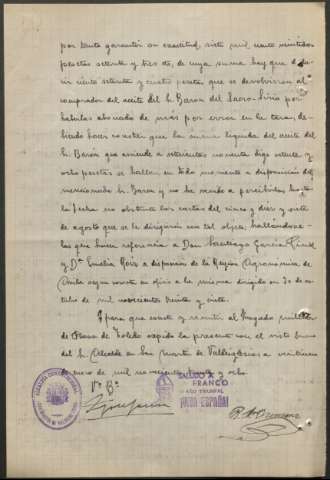 por tanto garantir su exactitud, siete mil ciento veintidos
pesetas setenta y tres cts, de cuya suma hay que dedu-
cir ciento setenta y cuatro pesetas que se devolvieron al
comprador del aceite del Sr. Baron del Sacro-Lirio por
haberlas abonado de más por error en la tara, de-
biendo hacer constar que la suma liquida del aceite del
Sr. Barón que asciende a setecientas noventa digo setenta y
ocho pesetas se hallan en todo momento a disposición del
mencionado Sr. Baron y no ha venido a percibirlas hasta
la fecha no obstante las cartas del cinco y diez y siete
de agosto que se le dirigieron con tal objeto, hallandose
las que hacen referencia a Don Santiago Garcia
y Dª Emilia Roiz a disposicion de la Region Agronomica de
segun consta en oficio a la misma dirigido en 30 de oc-
tubre de mil novecientos treinta y siete.
Y para que conste y remitir al Juzgado militar
de Plaza de Toledo expido la presente con el visto bueno
del Sr. Alcalde en San Martin de Valdeiglesias a veintiuno
de enero de mil novecientos treinta y ocho.
Vº Bº
SALUDO A
FRANCO
AÑO TRIUNFAL
¡ARRIBA ESPAÑA!